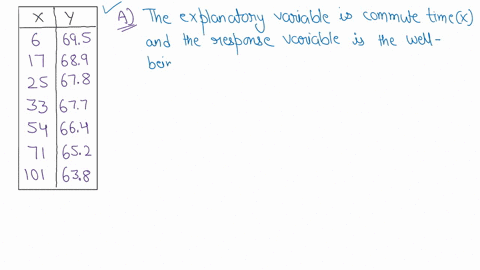 X Y
6 69.5
17 68.9
25 67.8
33 67.7
54 66.4
71 65.2
101 63.8
A) The explanatory variable is commute time(x)
and the response variable is the well-
bein